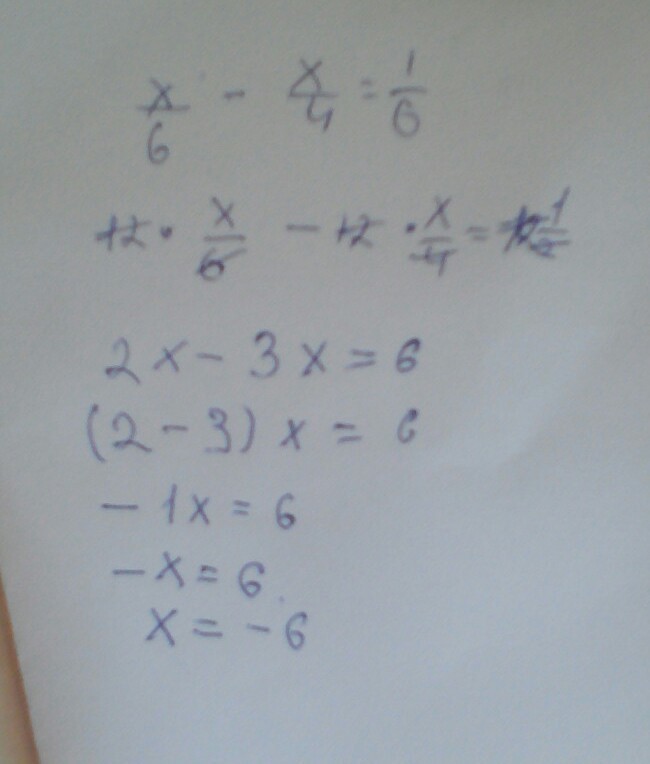 x/6 - x/4 = 1/6
12 · x/6 - 12 · x/4 = 12 1/2
2x - 3x = 6
(2 - 3) x = 6
- 1x = 6
- x = 6
x = - 6